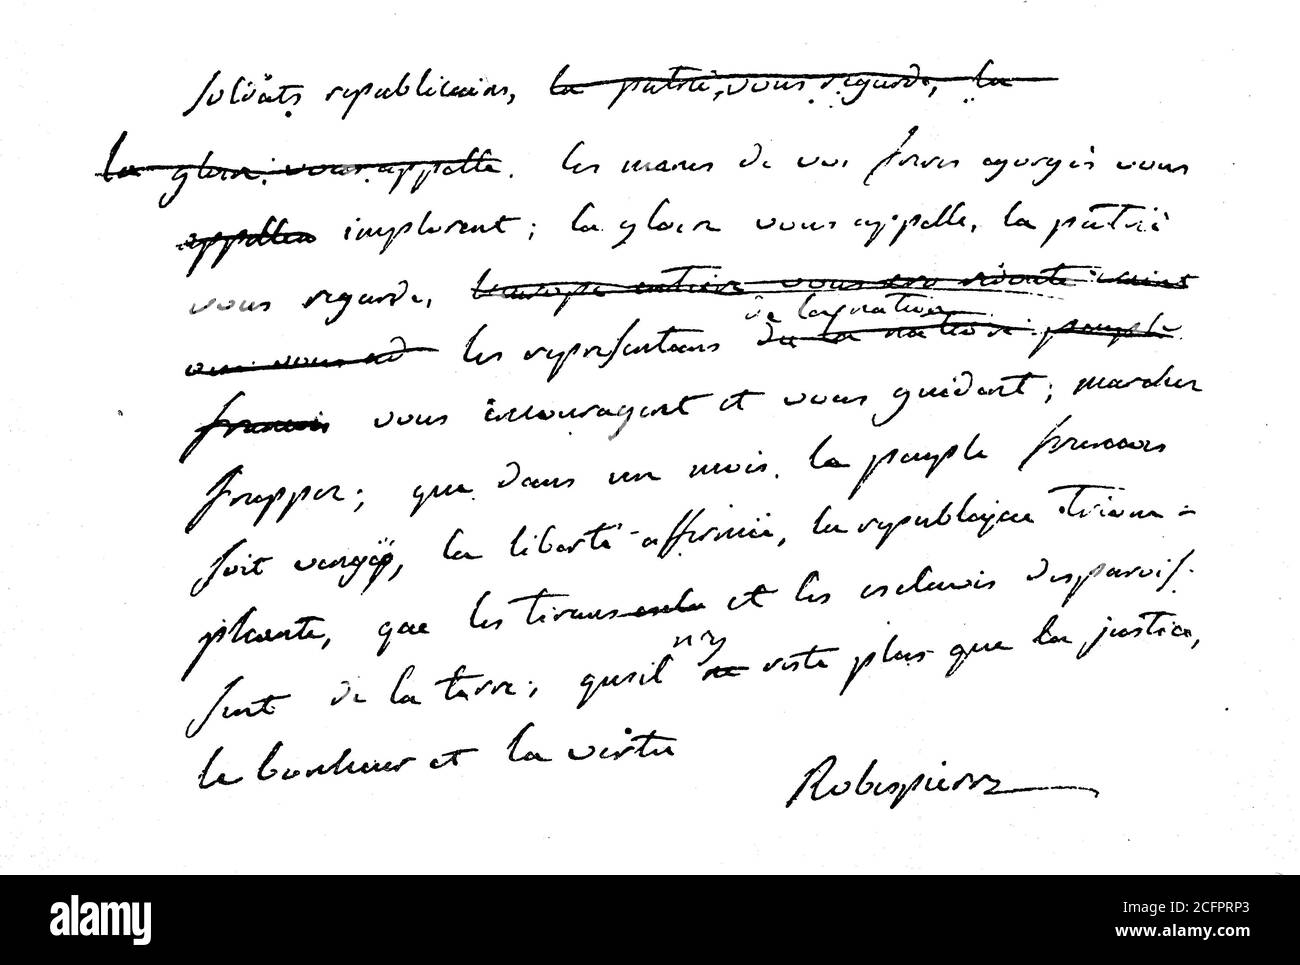 Soldats republicains, la patrie, vous regarde, la
la gloire vous appelle. les manes de vos freres egorgés vous
appellen implorent; la gloire vous appelle, la patrie
vous regarde, l'europe entiere vous
les representans de la nation du la nation peuple
francais vous encouragent et vous guident; marcher
frapper; que dans un mois, le peuple francais
soit vengé, la liberté affermie, la republique triom-
phante, que les tirans et les esclaves disparois-
sent de la terre; qu'il n'y ne reste plus que la justice,
le bonheur et la vertu
Robespierre
alamy
Image ID: 2CFPRP3
www.alamy.com